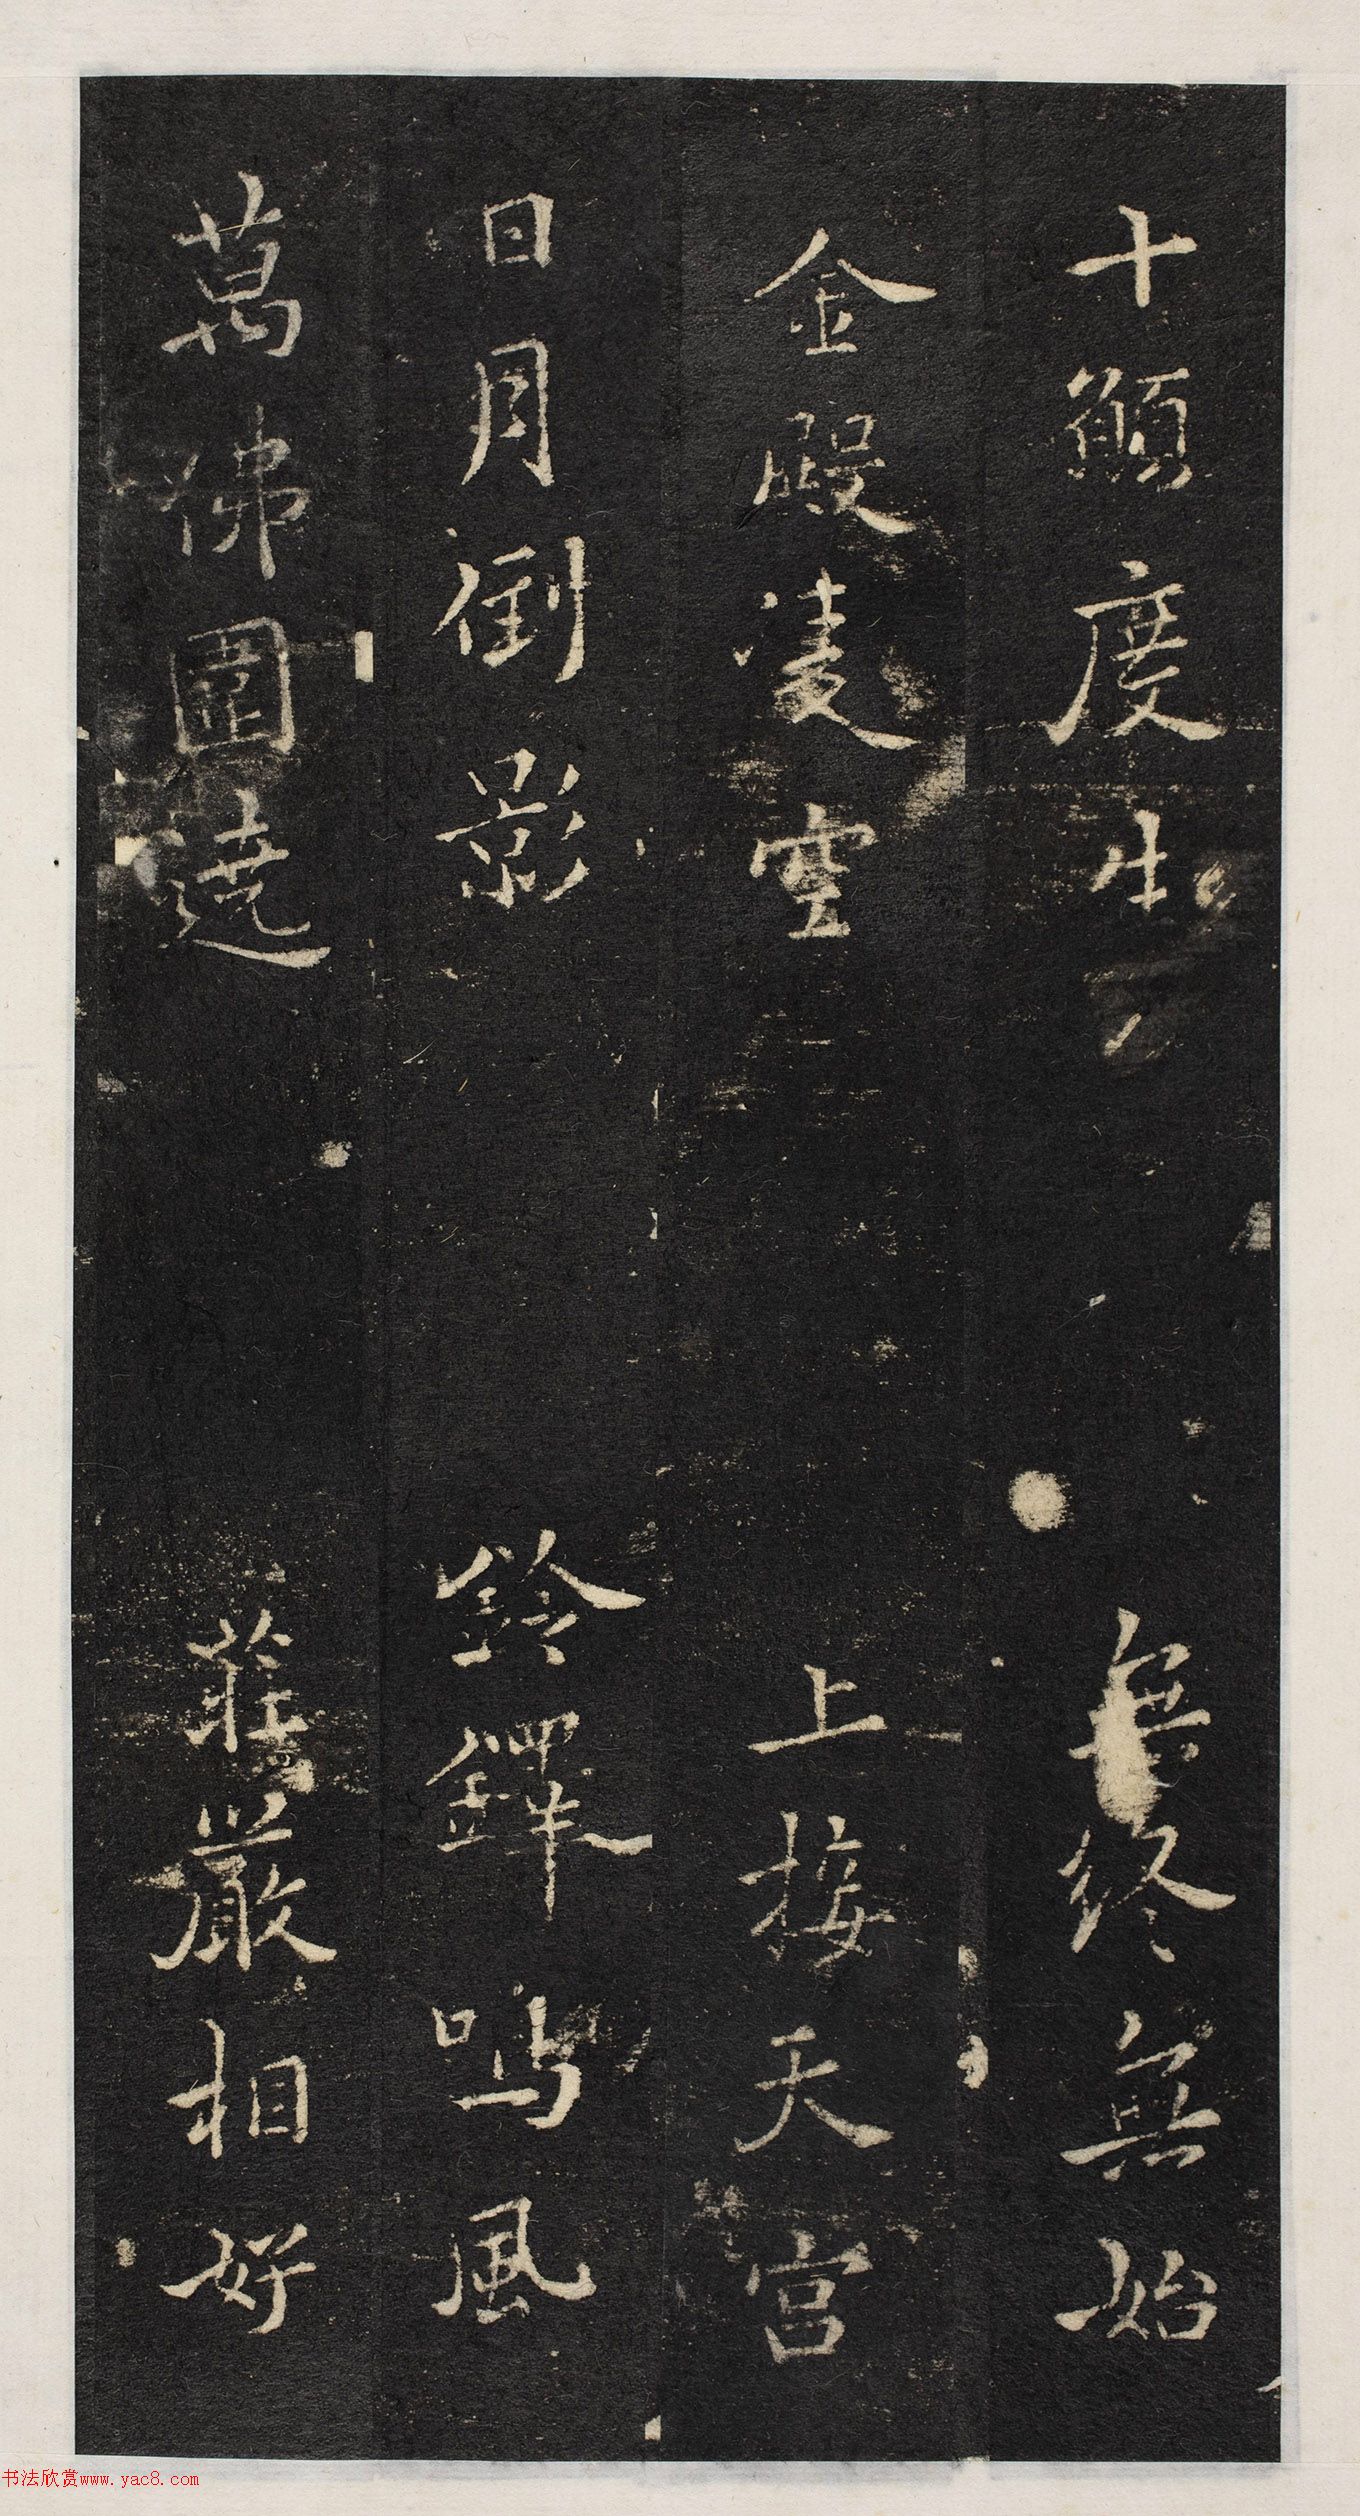 十願度生 無終無始
金殿凌空 上接天宮
日月倒影 鈴鐸鳴風
萬佛圍遶 莊嚴相好
书法欣赏www.yac8.com